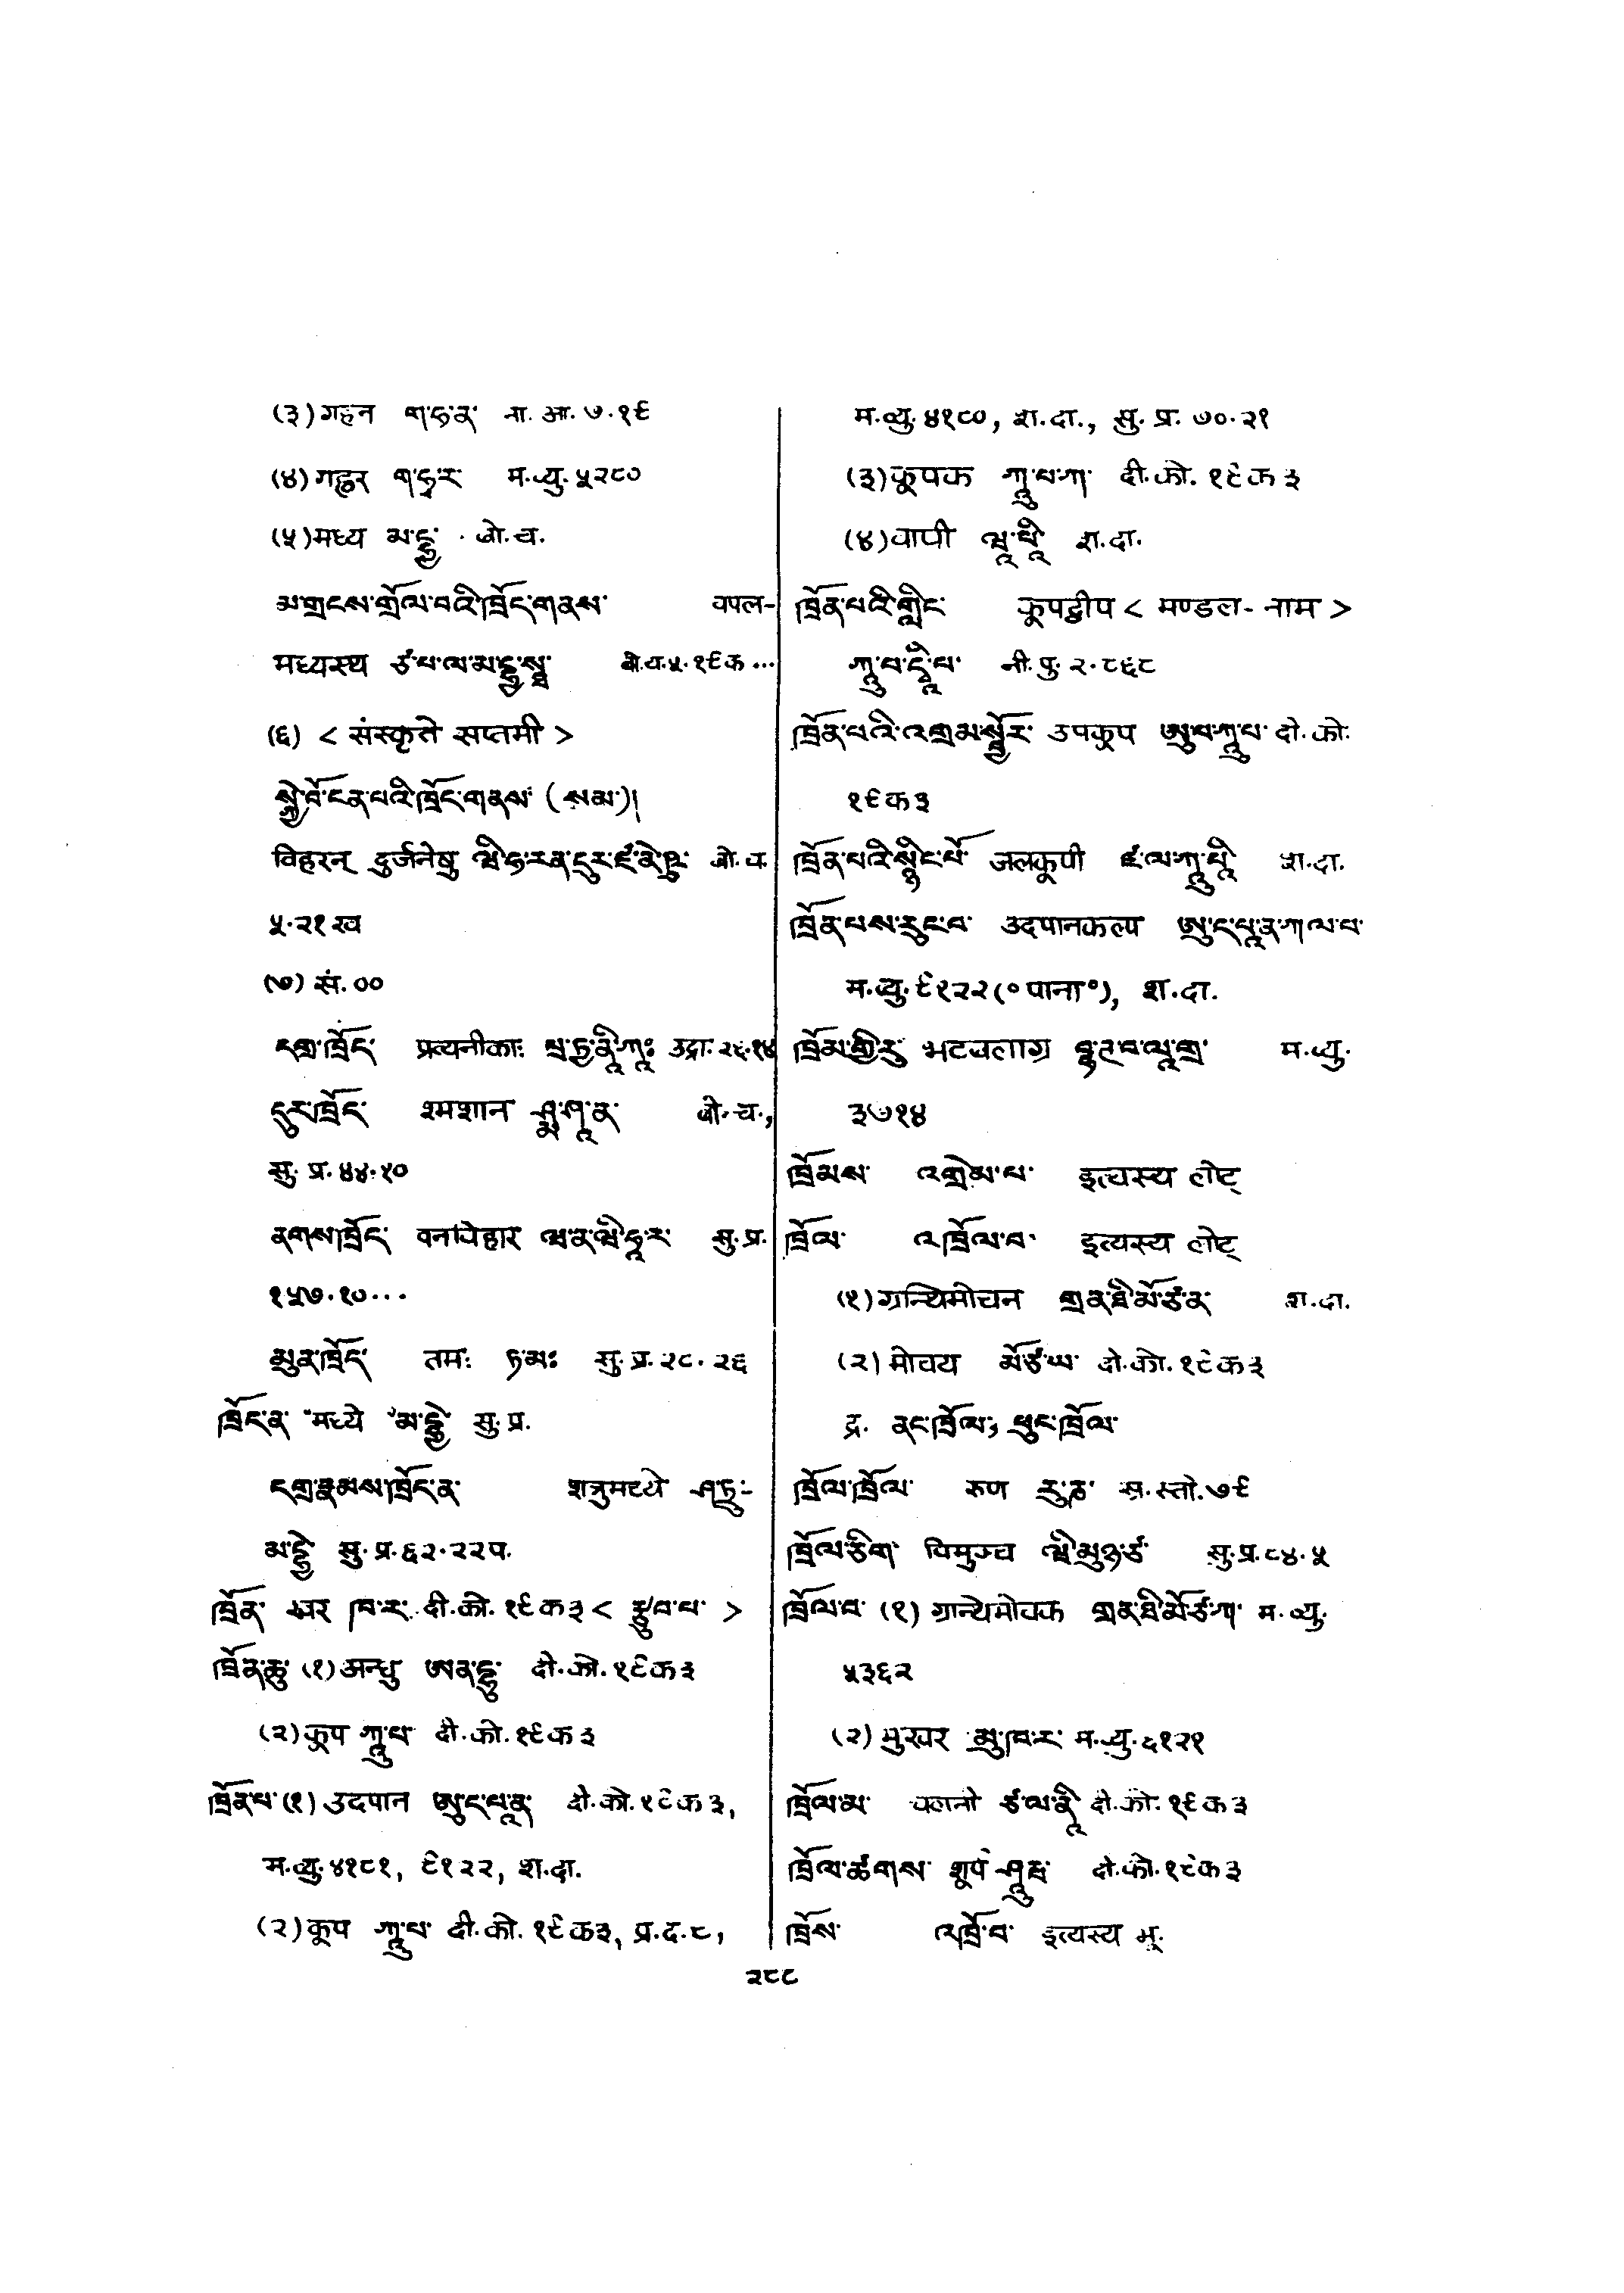 (३) गहन ག་ཧ་ན་ ना. आ. ७.१९
(४) गह्वर ག་ཧྭ་ར་ म.व्यु. ५२८०
(५) मध्य མ་དྷྱ་ बो.च.
མ་གྲངས་གྲོལ་བའི་ཁྲོད་གནས་ चपल-
मध्यस्थ ཙ་པ་ལ་མ་དྷྱ་སྠ་ बो.च.५.१९क...
(६) < संस्कृते सप्तमी >
སྐྱེ་བོ་ངན་པའི་ཁྲོད་གནས་ (སམ་)།
विहरन् दुर्जनेषु ཝི་ཧ་རན་དུར་ཛ་ནེ་ཥུ་ बो.च.
५.२१ख
(७) सं.००
དགྲ་ཁྲོད་ प्रत्यनीकाः པྲ་ཏྱ་ནཱི་ཀཱཿ उद्रा. २६.१४
དུར་ཁྲོད་ श्मशान ཤྨ་ཤཱ་ན་ बो.च.,
सु. प्र. ४४.१०
ནགས་ཁྲོད་ वनविहार ཝ་ན་ཝི་ཧཱ་ར་ सु.प्र.
१५७.१०...
མུན་ཁྲོད་ तमः ཏ་མཿ सु.प्र.२८.२६
ཁྲོད་ན་ °मध्ये °མ་དྷྱེ་ सु.प्र.
དགྲ་རྣམས་ཁྲོད་ན་ शत्रुमध्ये ཤ་ཏྲུ-
མ་དྷྱེ་ सु.प्र.६२.२२प.
ཁྲོན་ खर ཁ་ར་ दी.को. १९क३ < རྫུབ་པ་ >
ཁྲོན་ཆུ་ (१) अन्धु ཨན་དྷུ་ दी.को.१९क३
(२) कूप ཀཱུ་པ་ दी.को.१९क३
ཁྲོན་པ་ (१) उदपान ཨུ་ད་པཱ་ན་ दी.को.१९क३,
म.व्यु.४१८१, ९१२२, श.दा.
(२) कूप ཀཱུ་པ་ दी.को. १९क३, प्र.द.८,
म.व्यु.४१८०, श.दा., सु.प्र. ७०.२१
(३) कूपक ཀཱུ་པ་ཀ་ दी.को. १९क३
(४) वापी ཝཱ་པཱི་ श.दा.
ཁྲོན་པའི་གླིང་ कूपद्वीप < मण्डल-नाम >
ཀཱུ་པ་དྭཱི་པ་ नी.पु. २.८६८
ཁྲོན་པའི་འགྲམ་སྦྱོར་ उपकूप ཨུ་པ་ཀཱུ་པ་ दी.को.
१९क३
ཁྲོན་པའི་སྙིང་པོ་ जलकूपी ཛ་ལ་ཀཱུ་པཱི་ श.दा.
ཁྲོན་པས་རུང་བ་ उदपानकल्प ཨུ་ད་པཱ་ན་ཀལ་པ་
म.व्यु.९१२२(°पाना°), श.दा.
ཁྲོམ་གྱི་རུ་ भटवलाग्र བྷ་ཊ་བ་ལཱ་གྲ་ म.व्यु.
३७१४
ཁྲོམས་ འགྲེམ་པ་ इत्यस्य लोट्
ཁྲོལ་ འཁྲོལ་བ་ इत्यस्य लोट्
(१) ग्रन्थिमोचन གྲན་ཐི་མོ་ཙ་ན་ श.दा.
(२) मोचय མོ་ཙ་ཡ་ दी.को.१९क३
द्र. ནང་ཁྲོལ་, ཕུང་ཁྲོལ་
ཁྲོལ་ཁྲོལ་ रुण རུ་ཎ་ स.स्तो.७९
ཁྲོལ་ཅིག་ विमुञ्च ཝི་མུཉྩ་ सु.प्र.८४.५
ཁྲོལ་བ་ (१) ग्रन्थिमोचक གྲན་ཐི་མོ་ཙ་ཀ་ म.व्यु.
५३६२
(२) मुखर མུ་ཁ་ར་ म.व्यु.६१२१
ཁྲོལ་མ་ चलनी ཙ་ལ་ནཱི་ दी.को.१९क३
ཁྲོལ་ཚགས་ शूर्प ཤཱུརྤ་ दी.को.१९क३
ཁྲོས་ འཁྲོ་བ་ इत्यस्य भू.
२८८